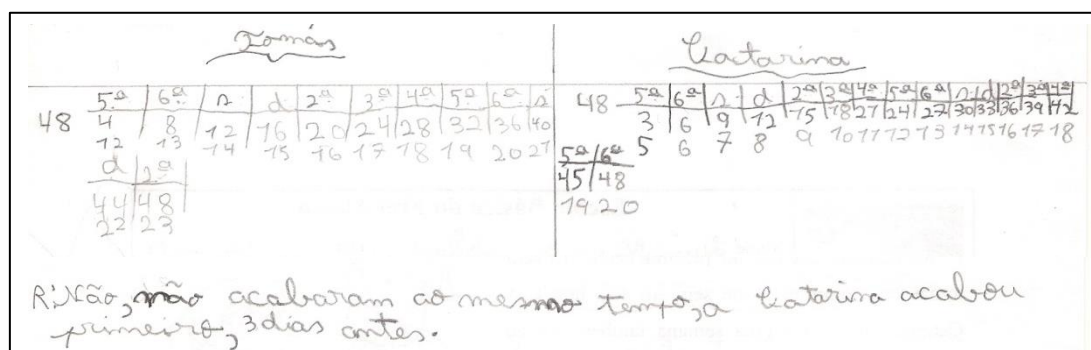 Tomás
48 5.ª 6.ª s d 2ª 3ª 4ª 5ª 6ª s
4 8 12 16 20 24 28 32 36 40
12 13 14 15 16 17 18 19 20 21
d 2ª
44 48
22 23
Catarina
48 5ª 6ª s d 2ª 3ª 4ª 5ª 6ª s d 2ª 3ª 4ª
3 6 9 12 15 18 21 24 27 30 33 36 39 42
5 6 7 8 9 10 11 12 13 14 15 16 17 18
5ª 6ª
45 48
19 20
R: Não, não acabaram ao mesmo tempo, a Catarina acabou
primeiro, 3 dias antes.